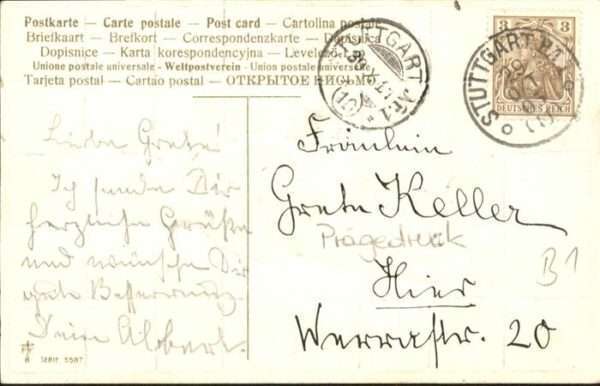 Postkarte — Carte postale — Post card — Cartolina postale
Briefkaart — Brefkort — Correspondenzkarte — Dopisnica
Dopisnice — Karta korespondencyjna — Levelező-
Unione postale universale - Weltpostverein - Union postale universelle
Tarjeta postal — Cartão postal — ОТКРЫТОЕ ПИСЬМО
STUTTGART Nr.1
3 3
DEUTSCHES REICH
STUTTGART
Liebe Grete!
Ich sende Dir
herzliche Grüße
und wünsche Dir
gute Besserung.
Dein Albert.
SERIE 5587
Fräulein
Grete Keller
Prägedruck
B1
Hier
Werrastr. 20